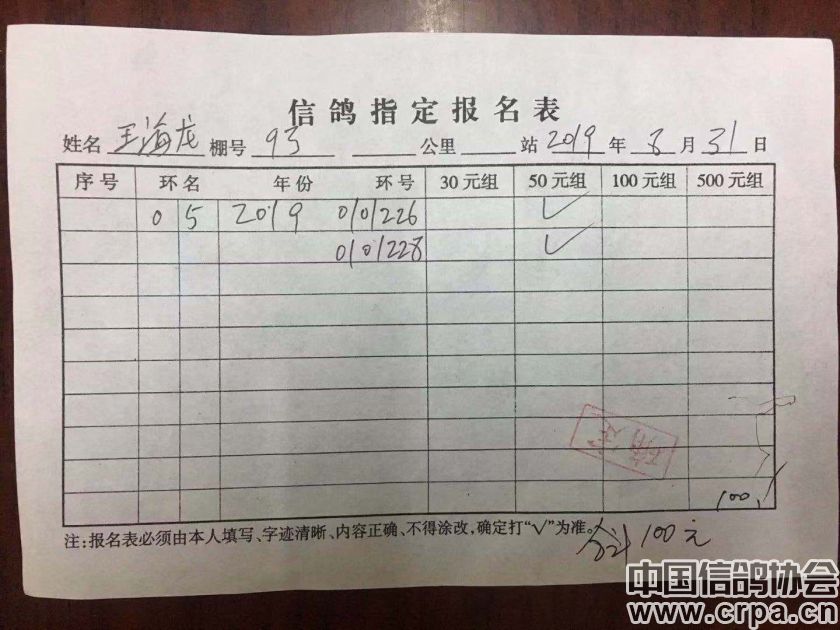 信鸽指定报名表
姓名 王海龙 棚号 93 公里 站 2019 年 8 月 31 日
序号 环名 年份 环号 30元组 50元组 100元组 500元组
0 5 2019 0101226 √
0101228 √
确定
100
注:报名表必须由本人填写、字迹清晰、内容正确、不得涂改,确定打“√”为准。
合计 100元
中国信鸽协会
www.crpa.cn